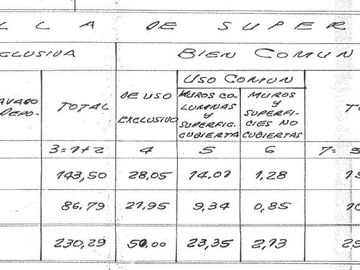 LLA DE SUPER
CLUSIVA BIEN COMUN
USO COMUN
AVADO DEPO- TOTAL DE USO EXCLUSIVO MUROS CO- LUMNAS Y SUPERFIC. CUBIERTA MUROS Y SUPERFI- CIES NO CUBIERTAS
3=1+2 4 5 6 7=
143,50 28,05 14,01 1,28
86,79 21,95 9,34 0,85
230,29 50,00 23,35 2,13